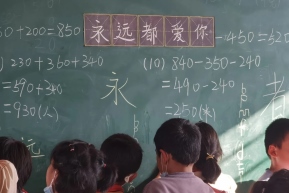 50+200=850 永远都爱你 -450=620
) 230+360+340 (10) 840-350-240
=590+340 永 =490-240 者
=930(人) =250(米)
远